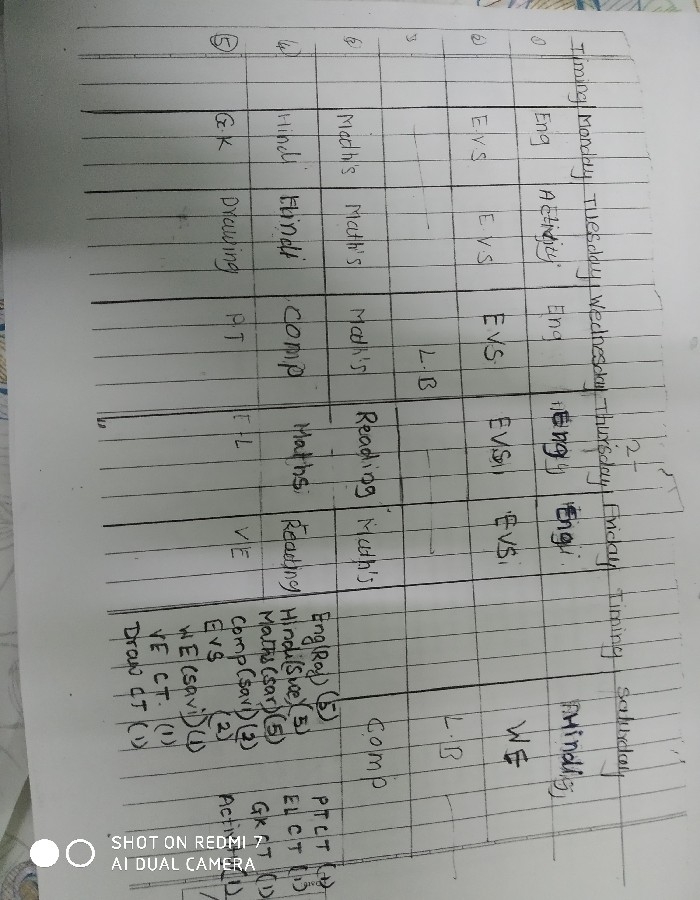 2-
Timing Monday Tuesday Wednesday Thursday Friday Timing Saturday
① Eng Activity Eng Eng Eng Hindi
② EVS EVS EVS EVS EVS WE
3 L.B L.B
Math's Math's Math's Reading Math's Comp
(4) Hindi Hindi Comp Maths Reading
⑤ G.K Drawing PT EL VE
Eng (Raj) (5)
Hindi
Maths (sar) (5)
Comp (savi) (2)
EVS
WE (savi) (1)
VE CT. (1)
Draw CT (1)
PTCT
ELCT (1)
GKCT (1)
SHOT ON REDMI 7
AI DUAL CAMERA